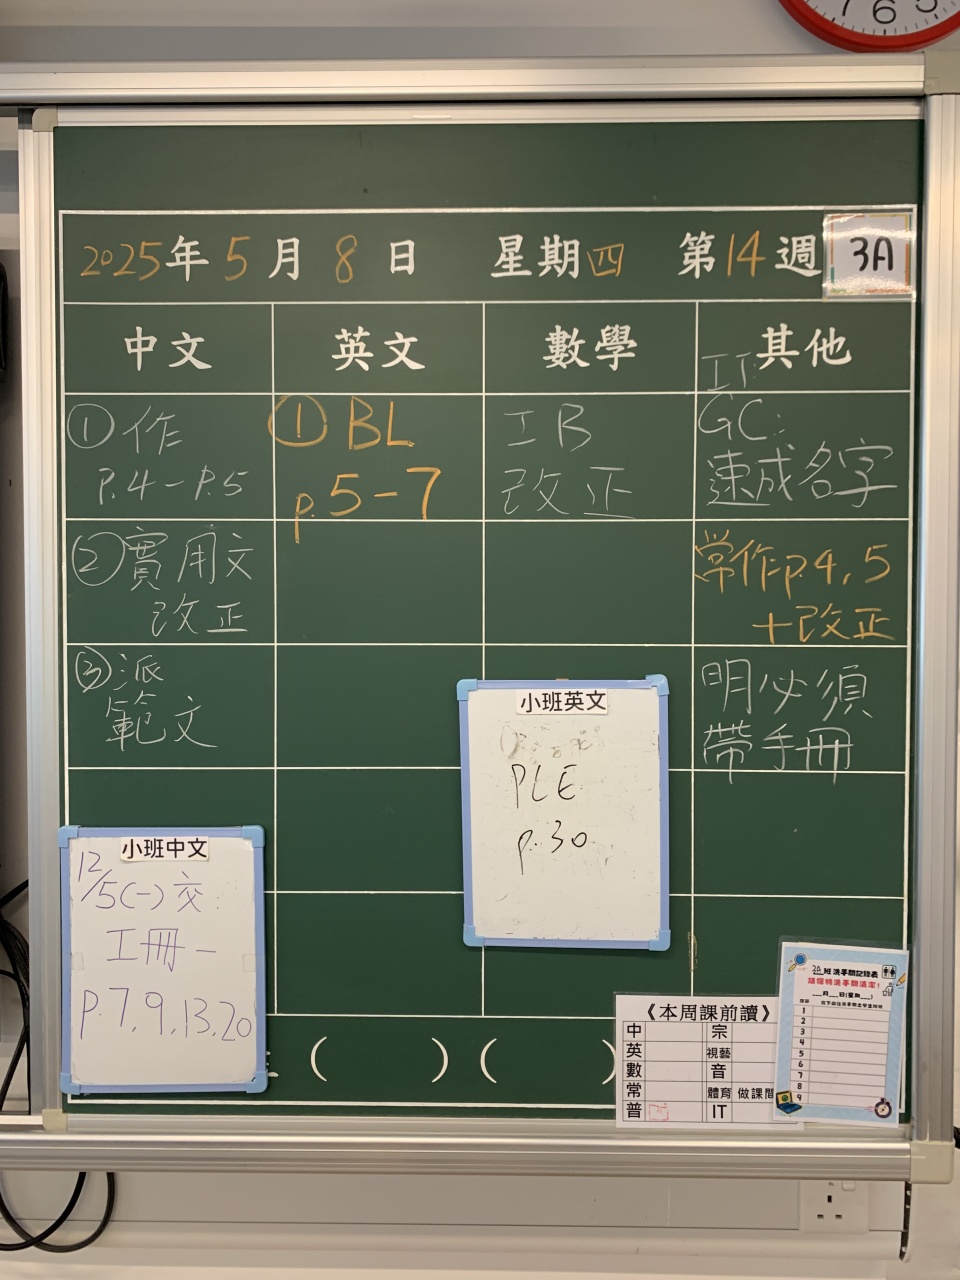 7 6 5
2025年5月8日 星期四 第14週 3A
中文 英文 數學 其他
①作
P.4-P.5
②實用文
改正
③派
範文
①BL
p.5-7
IB
改正
IT
GC:
速成名字
常作p.4,5
+改正
明必須
帶手冊
小班英文
PLE
p.30
小班中文
12/5(一)交:
工冊一
p.7,9,13,20
( ) ( )
《本周課前讀》
中 宗
英 視藝
數 音
常 體育 做課間
普 IT
3A班洗手間記錄表
請保持洗手間清潔!
__月__日(星期__)
1
2
3
4
5
6
7
8
9